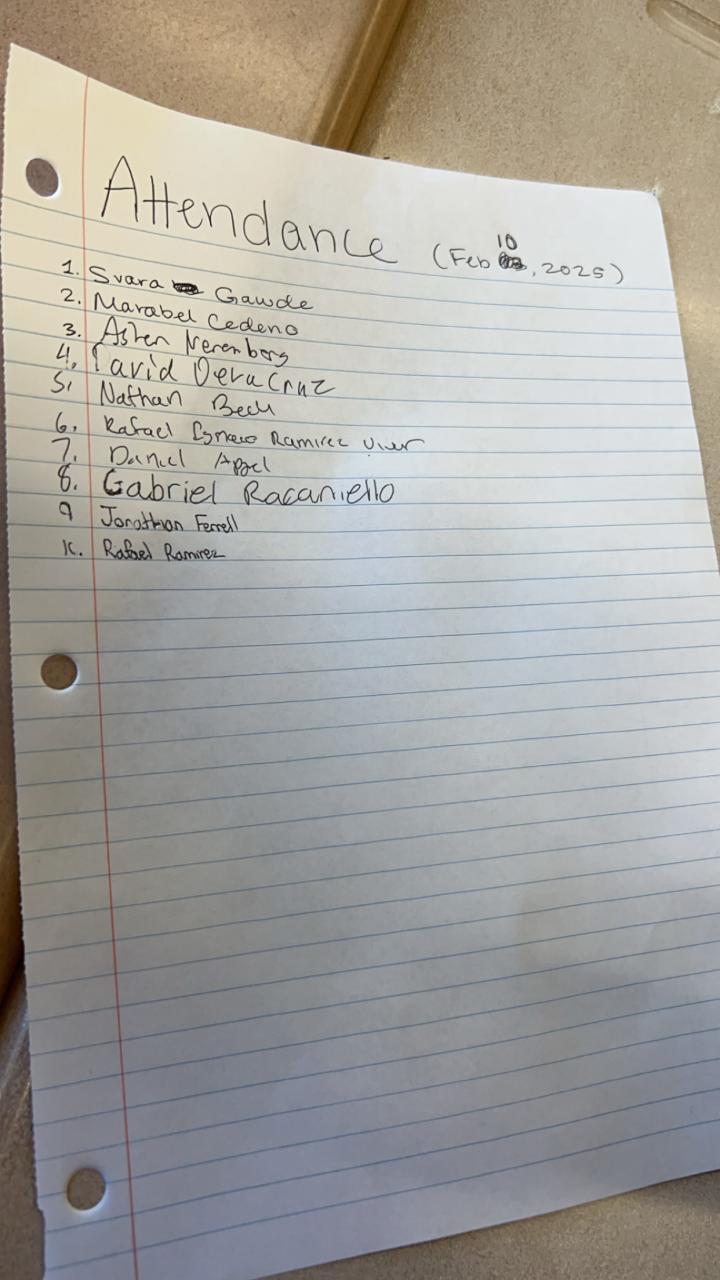 Attendance (Feb 10, 2025)
1. Svara Gawde
2. Marabel Cedeno
3. Asher Nerenberg
4. David Vera Cruz
5. Nathan Beck
6. Rafael Ramirez
7. Daniel Appel
8. Gabriel Racaniello
9 Jonathan Ferrell
10. Rafael Ramirez